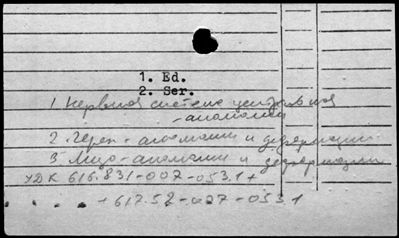 1. Ed.
2. Ser.
1. Нервная система центральная
- аномалии
2. Череп - аномалии и деформации
3. Лицо - аномалии и деформации
УДК 616.831-007-053.1 +
+ 617.52-007-053.1